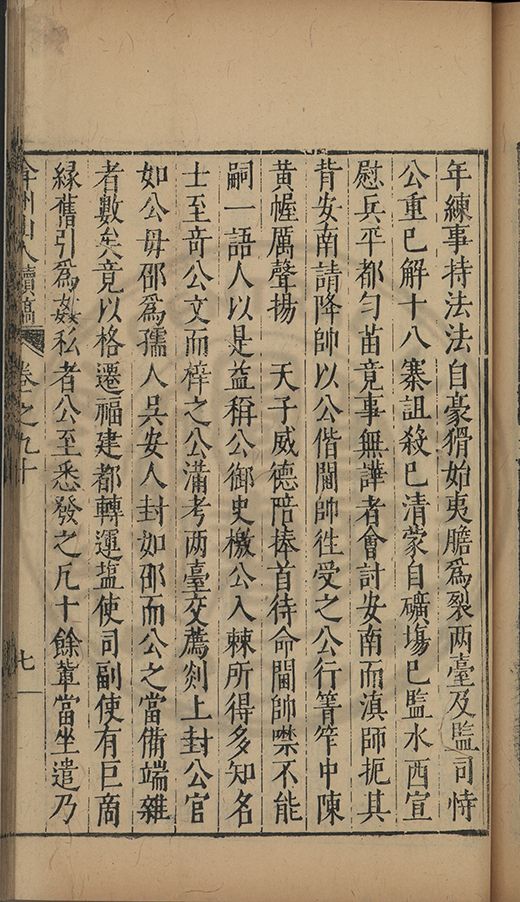 年練事持法法自豪猾始夷膽爲裂两臺及監司恃
公重巳解十八寨詛殺巳清蒙自礦塲巳監水西宣
慰兵平都勻苗竟事無譁者會討安南而滇師扼其
背安南請降帥以公偕閫帥徃受之公行箐笮中陳
黄幄厲聲揚　天子威德陪捧首待命閫帥噤不能
嗣一語人以是益稱公御史檄公入棘所得多知名
士至竒公文而梓之公滿考两臺交薦剡上封公官
如公毋邵爲孺人吳安人封如邵而公之當偹端雜
者數矣竟以格遷福建都轉運塩使司副使有巨商
緣舊引爲姦私者公至悉發之凢十餘軰當坐遣乃
弇州山人續稿　卷之九十　七